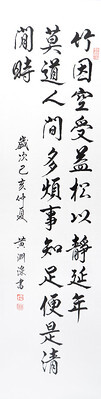 竹因空受益松以靜延年
莫道人間多煩事知足便是清
閒時
歲次己亥仲夏 黃淵深書